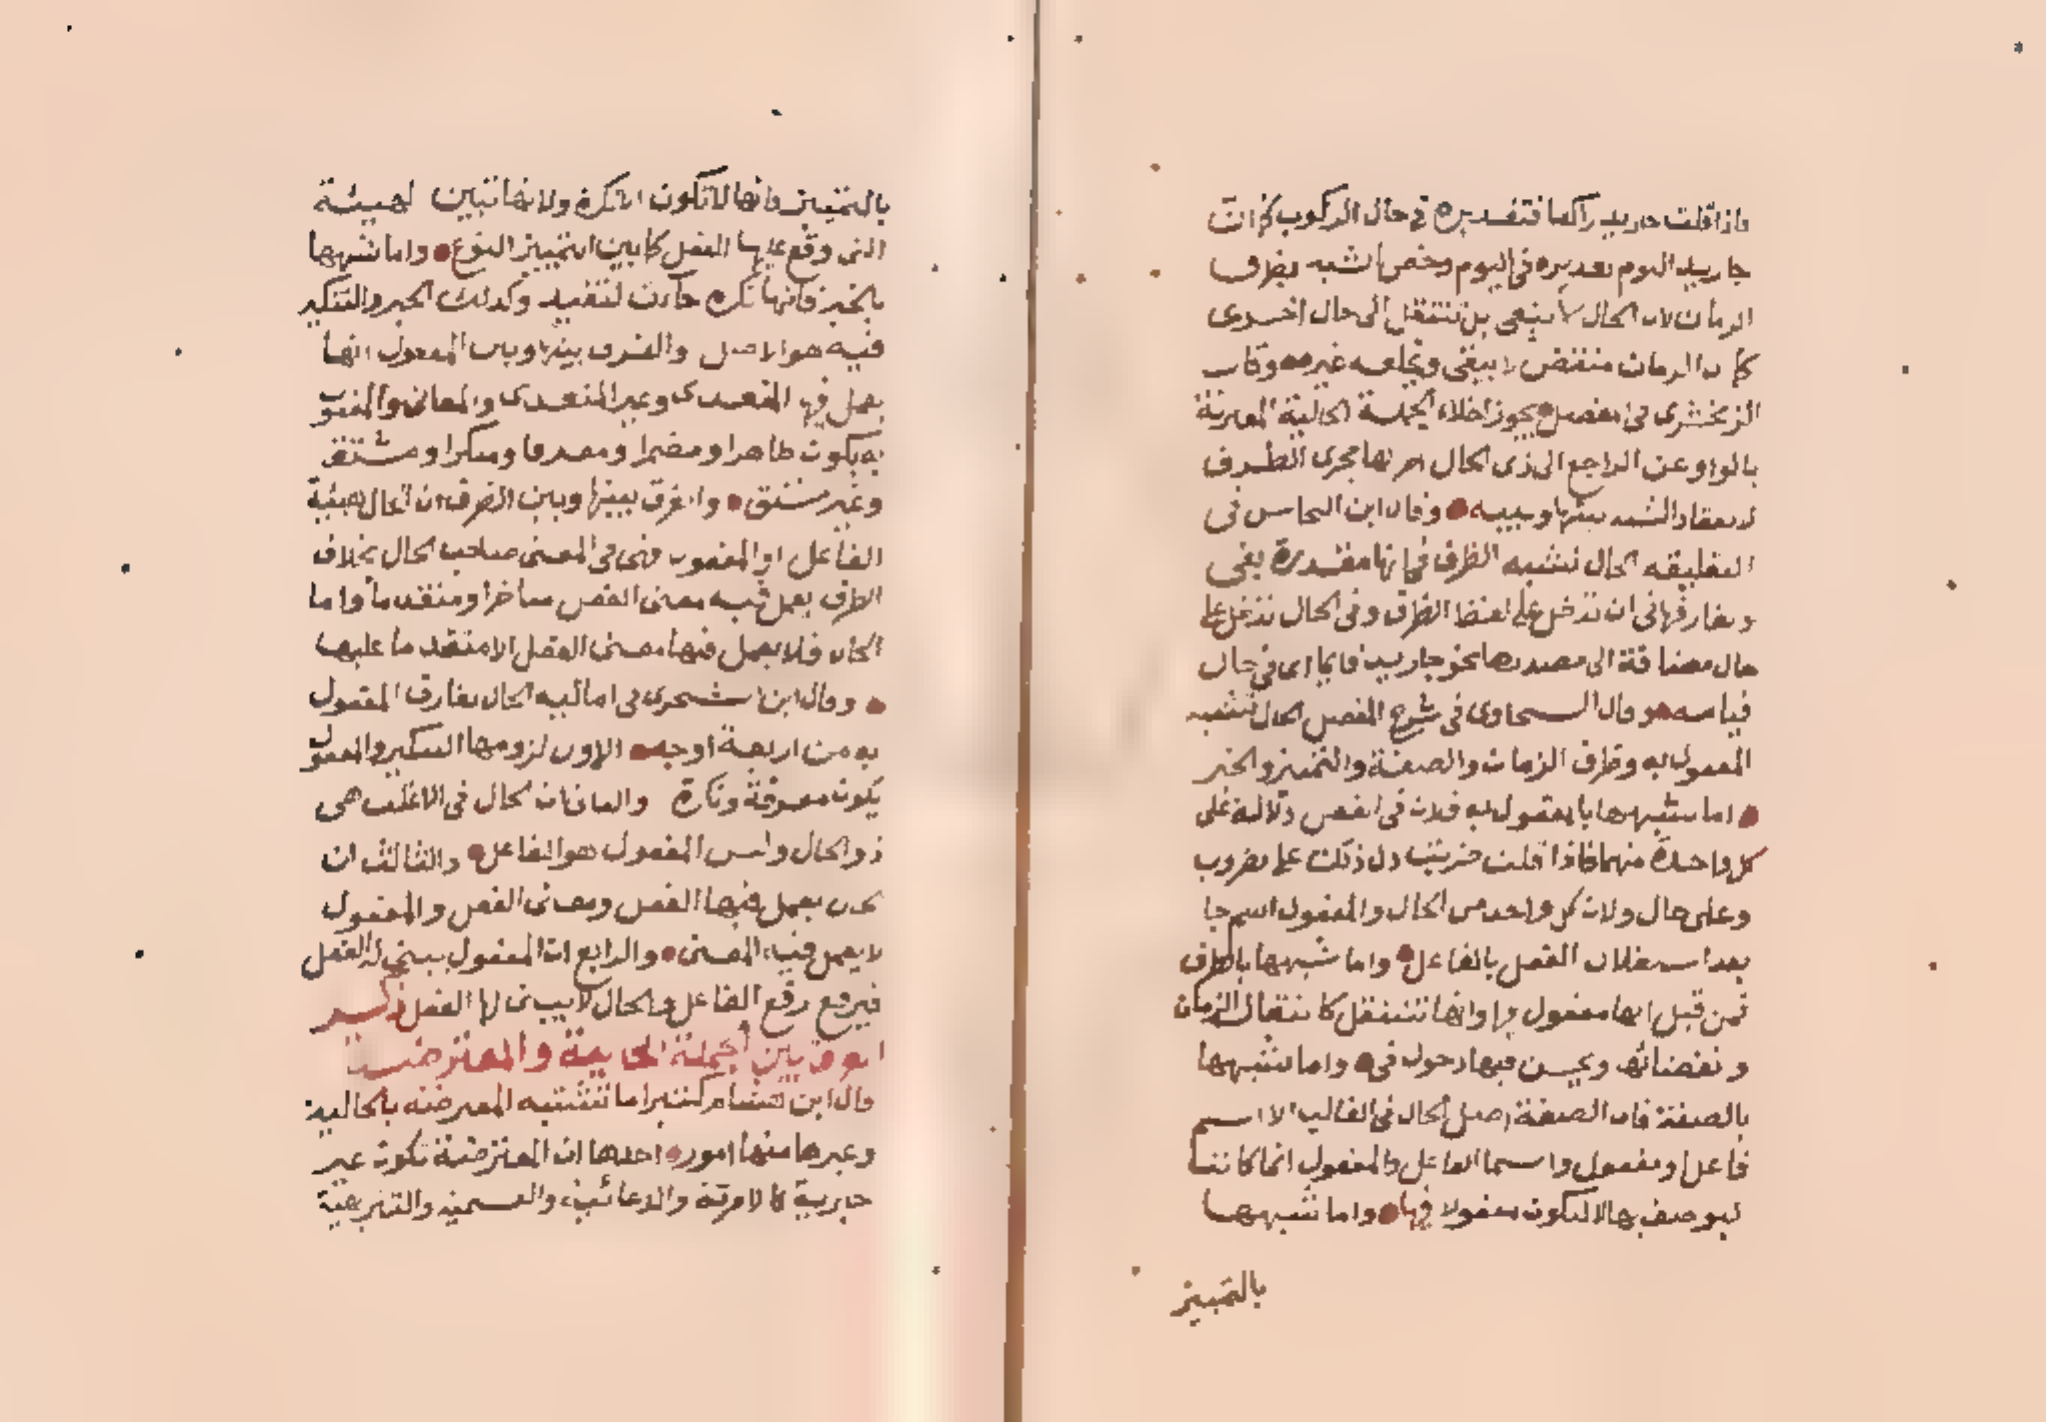 فاذا قلت جا زيد راكبا فتقديره في حال الركوب كما ان
جا زيد اليوم تقديره في اليوم وخص الشبه بظرف
الزمان لان الحال لا تبقى بل تنتقل الى حال اخرى
كما ان الزمان منقض لا يبقى ويخلفه غيره وقال
الزمخشري في المفصل يجوز اخلاء الجملة الحالية المقترنة
بالواو عن الراجع الى ذي الحال اجرا لها مجرى الظرف
لانعقاد الشبه بينها وبينه وقال ابن النحاس في
التعليقه الحال تشبه الظرف في انها مقدرة بفي
وتفارقها في ان تدخل على لفظ الظرف وفي الحال تدخل على
حال مضافة الى مصدرها نحو جا زيد قايما اي في حال
قيامه وقال السخاوي في شرح المفصل الحال تشبه
المفعول به وظرف الزمان والصفة والتمييز والخبر
اما شبهها بالمفعول به فلان في الفعل دلالة على
كل واحدة منهما فاذا قلت ضربت دل ذلك على مضروب
وعلى حال ولان كل واحد من الحال والمفعول اسم جا
بعد استقلال الفعل بالفاعل واما شبهها بالظرف
فمن قبل انها مفعول فيها وانها تنتقل كانتقال الزمان
وتقضياته ويحسن فيها دخول في واما شبهها
بالصفة فان الصفة اصل الحال في الغالب الا اسم
فاعل او مفعول واسما الفاعل والمفعول انما كانتا
ليوصف بها لا لتكون مفعولا فيها واما شبهها
بالتمييز
بالتمييز فانها لا تكون الا نكرة ولانها تبين لهيئة
التي وقع عليها الفعل كما بين التمييز النوع واما شبهها
بالخبر فانها نكرة جاءت لتفيد وكذلك الخبر والتنكير
فيه هو الاصل والفرق بينها وبين المفعول انها
يعمل فيها المتعدي وغير المتعدي والمعاني والمفعول
به يكون ظاهرا ومضمرا ومعرفا ومنكرا ومشتقا
وغير مشتق والفرق بينها وبين الظرف ان الحال هيئة
الفاعل او المفعول فهي في المعنى صاحب الحال بخلاف
الظرف يعمل فيه معنى الفعل متاخرا ومتقدما واما
الحال فلا يعمل فيها معنى الفعل الا متقدما عليها
وقال ابن الشجري في اماليه الحال تفارق المفعول
به من اربعة اوجه الاول لزومها التنكير والمفعول
يكون معرفة ونكرة والثاني ان الحال في الاغلب هي
ذو الحال وليس المفعول هو الفاعل والثالث ان
الحال يعمل فيها الفعل ومعنى الفعل والمفعول
لا يعمل فيه المعنى والرابع ان المفعول يبنى له الفعل
فيرفع رفع الفاعل والحال لا يبنى لها الفعل ذكر
الفرق بين الجملة الحالية والمعترضة
قال ابن هشام كثيرا ما تشتبه المعترضة بالحالية
وغيرها منها امور احدها ان المعترضة تكون غير
خبرية كالامرية والدعائية والقسمية والتنزيهية